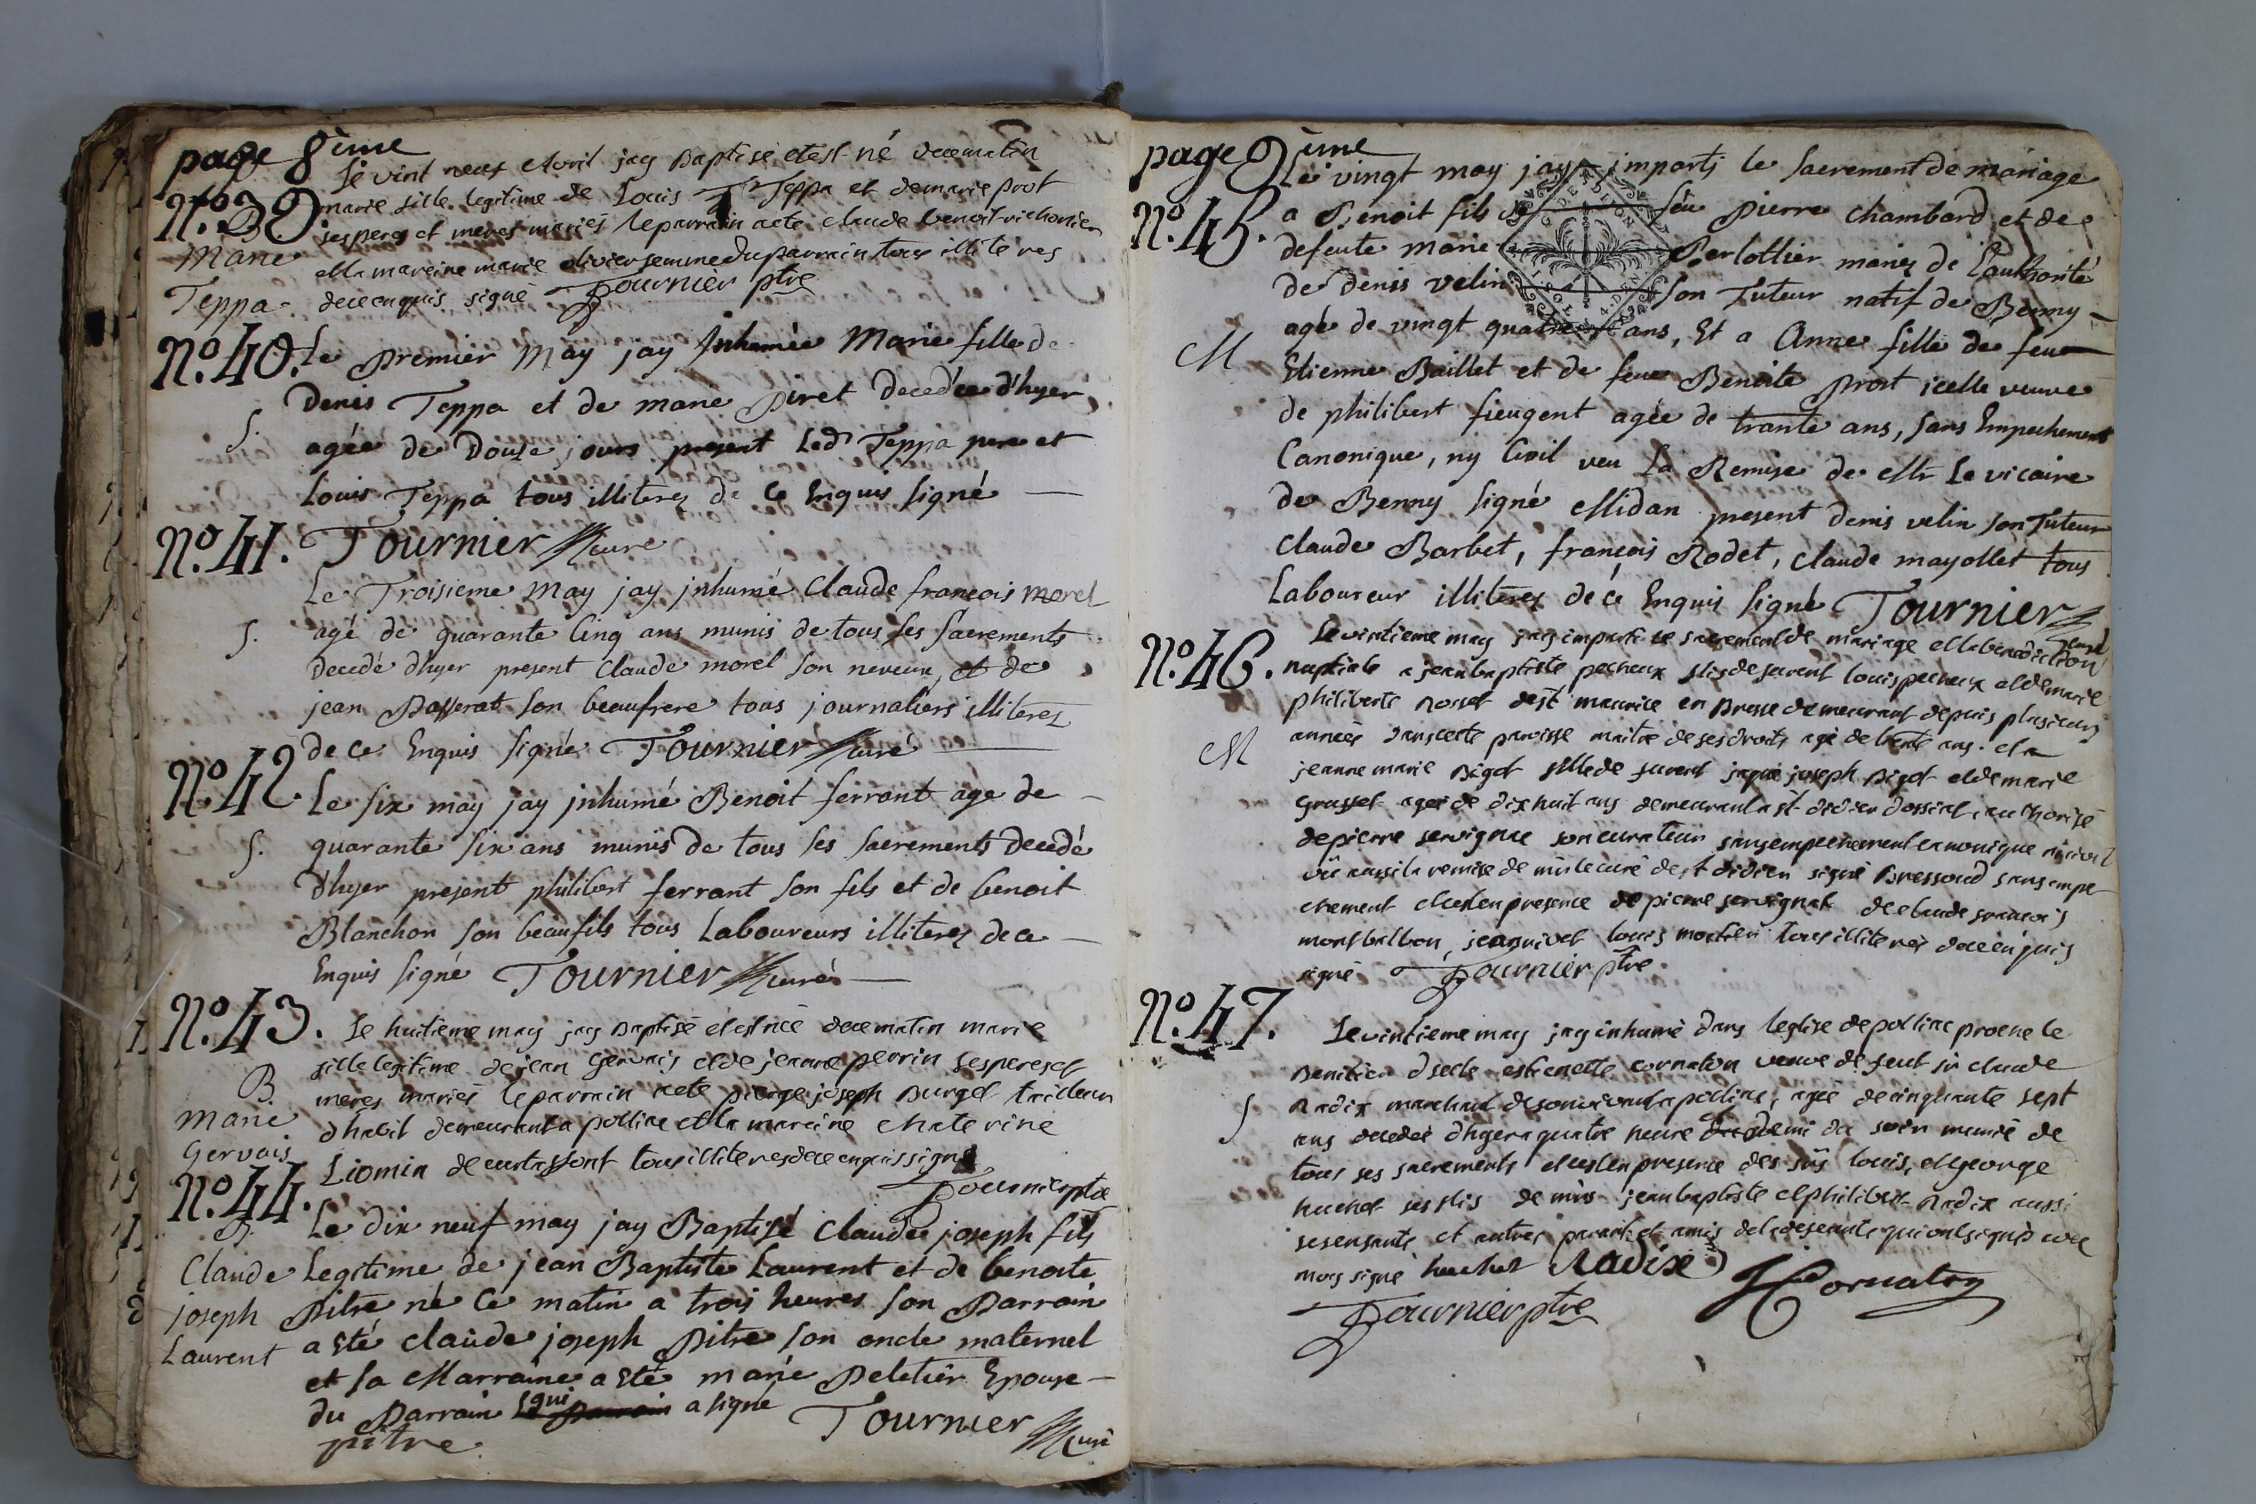 page 8ème
Le vint neuf Avril jay Baptisé etest né decematin
No. 39.
marie fille legitime de Louis Teppa et demarie prost
ses peres et meres mariés leparrain aete claude benoit
B
Marie
Teppa.
et la mareine marie olivier femme du parrain tous illiteres
dece enquis signé Tournier ptre
No. 40.
Le Premier May jay Inhumée Marie fille de
Denis Teppa et de marie Piret Decedée d'hyer
S.
agée de Douze jours present Led Teppa pere et
Louis Teppa tous illiterez de Ce Enquis signé
No. 41.
Tournier Curé
Le Troisieme May jay jnhumé Claude francois morel
S.
agé de quarante Cinq ans munis de tous ses sacrements
Decedé d'hyer present Claude morel son neveux, et de
jean Passerat son beaufrere tous journaliers illiterez
de ce Enquis signé Tournier Curé
No. 42.
Le six may jay jnhumé Benoit ferrant age de
S.
quarante six ans munis de tous ses sacrements Decedé
d'hyer present philibert ferrant son fils et de benoit
Blanchon son beaufils tous Laboureurs illiterez de ce
Enquis signé Tournier Curé
No. 43.
Le huitieme may jay Baptisé et est née decematin marie
fille legitime de jean Gervais et de jeanne perrin ses peres et
B.
Marie
Gervais
meres mariés le parrain aete pierre joseph Burgel tailleur
d'habit demeurant a polliac et la mareine chaterine
Liomin de tous illiteres dece enquis signé
Tournier ptre
No. 44.
Le dix neuf may jay Baptisé Claude joseph fils
B.
Claude
joseph
Laurent
Legitime de jean Baptiste Laurent et de benoite
Pitre né Ce matin a trois heures son Parrain
a Eté claude joseph Pitre son oncle maternel
et sa Marraine a Eté marie Peletier Epouse
du Parrain qui a signé Tournier Curé
pitre
page 9ème
No. 45.
Le vingt may jay imparti le sacrement de mariage
a Benoit fils de feu Pierre chambard et de
defeute marie Perlottier mariez de l'authorité
de denis velin son Tuteur natif de Benny
agé de vingt quatre ans, Et a Anne fille de feu
M
Etienne Baillet et de feue Benoite Prost icelle veuve
de philibert fieugent agée de trante ans, sans Empechement
Canonique, ny Civil veu La Remise de Mr Le vicaire
de Benny signé Midan present denis velin son Tuteur
Claude Barbet, francois Rodet, Claude mayollet tous
Laboureur illiterez de cé Enquis signé Tournier
curé
No. 46.
Le vintieme may jay imparti le sacrement de mariage et la benediction
nuptiale a jean baptiste pecheux fils de louis pecheux et de marie
philiberte Rosset de st maurice en Bresse demeurant depuis plusieurs
années dans cette paroisse maitre de ses droits agé de trente ans. et a
M
jeanne marie Bigot fille de jaque joseph Bigot et de marie
Grosset agée de dixhuit ans demeurant a st didier d'ossiat, authorisé
de pierre servignat son curateur sans empechement canonique ni civil
vû aussi la remise de mr le curé de st didier signé Bressoud sans empe-
chement et en presence de pierre servignat de claude francois
montbalbon, jean louis tous illiteres dece enquis
signé Tournier ptre
No. 47.
Le vintieme may jay inhumé dans leglise de polliac proche le
Benitier estienette cornaton veuve de feut sr claude
Radix marchand de son vivant a polliac, agée decinquante sept
S
ans decedée d'hyer a quatre heure du soir munié de
tous ses sacrements et en presence des srs louis, et George
huchet ses fils de mrs jean baptiste et philibert Radix aussi
ses ensants et autres parents et amis de la qui ont signés avec
moy signé huchet Radix Cornaton
Tournier ptre